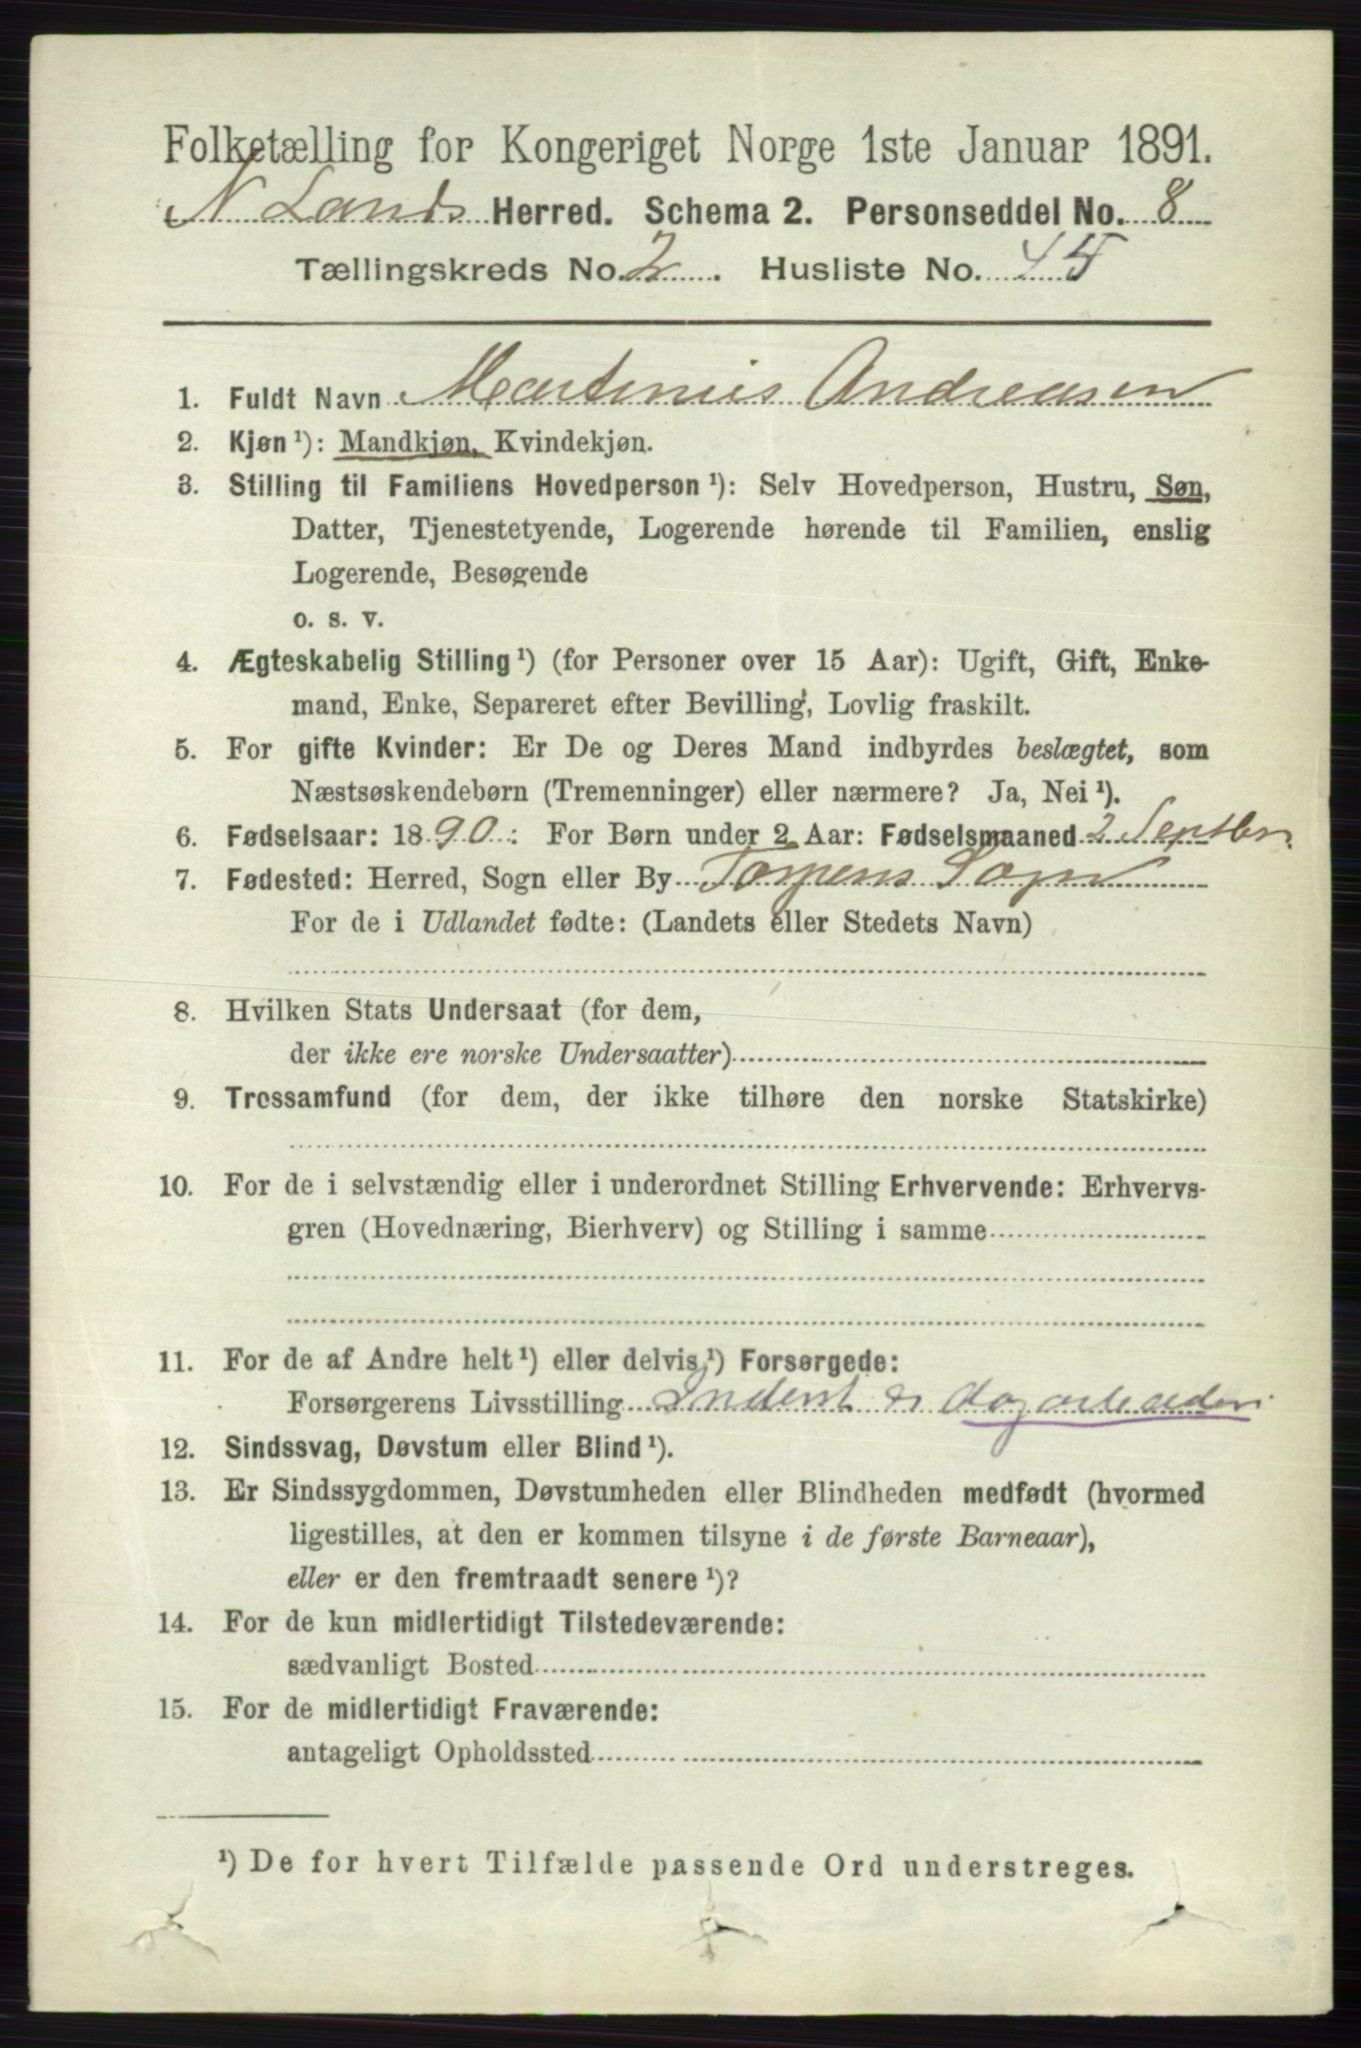 Folketælling for Kongeriget Norge 1ste Januar 1891.
N Lands Herred. Schema 2. Personseddel No. 8
Tællingskreds No. 2. Husliste No. 45
1. Fuldt Navn Martinius Andreasen
2. Kjøn ¹): Mandkjøn, Kvindekjøn.
3. Stilling til Familiens Hovedperson ¹): Selv Hovedperson, Hustru, Søn,
Datter, Tjenestetyende, Logerende hørende til Familien, enslig
Logerende, Besøgende
o. s. v.
4. Ægteskabelig Stilling ¹) (for Personer over 15 Aar): Ugift, Gift, Enke-
mand, Enke, Separeret efter Bevilling, Lovlig fraskilt.
5. For gifte Kvinder: Er De og Deres Mand indbyrdes beslægtet, som
Næstsøskendebørn (Tremenninger) eller nærmere? Ja, Nei ¹).
6. Fødselsaar: 1890: For Børn under 2 Aar: Fødselsmaaned 2 Septbr.
7. Fødested: Herred, Sogn eller By Torpens Sogn
For de i Udlandet fødte: (Landets eller Stedets Navn)
8. Hvilken Stats Undersaat (for dem,
der ikke ere norske Undersaatter)
9. Trossamfund (for dem, der ikke tilhøre den norske Statskirke)
10. For de i selvstændig eller i underordnet Stilling Erhvervende: Erhvervs-
gren (Hovednæring, Bierhverv) og Stilling i samme
11. For de af Andre helt ¹) eller delvis ¹) Forsørgede:
Forsørgerens Livsstilling Inderst & dagarbeider
12. Sindssvag, Døvstum eller Blind ¹).
13. Er Sindssygdommen, Døvstumheden eller Blindheden medfødt (hvormed
ligestilles, at den er kommen tilsyne i de første Barneaar),
eller er den fremtraadt senere ¹)?
14. For de kun midlertidigt Tilstedeværende:
sædvanligt Bosted
15. For de midlertidigt Fraværende:
antageligt Opholdssted
¹) De for hvert Tilfælde passende Ord understreges.